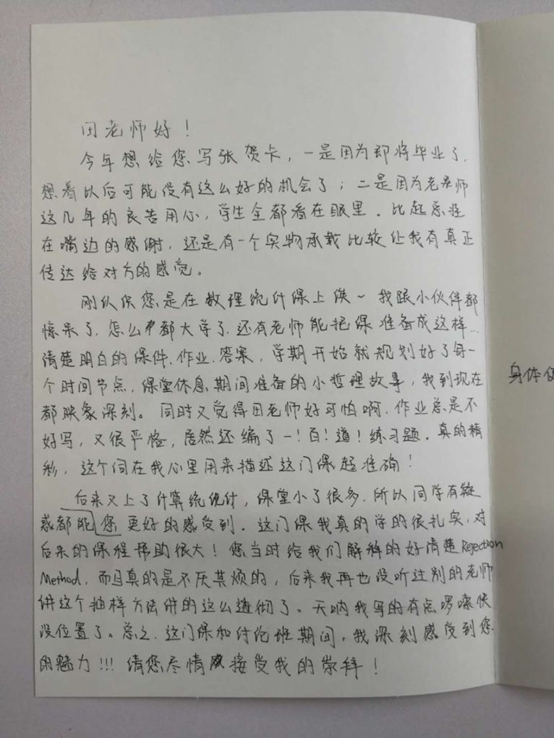 田老师好！
今年想给您写张贺卡，一是因为即将毕业了，
想着以后可能没有这么好的机会了；二是因为老师
这几年的良苦用心，学生全都看在眼里。比起总挂
在嘴边的感谢，还是有一个实物承载比较让我有真正
传达给对方的感觉。
刚认识您是在数理统计课上 ~ 我跟小伙伴都
惊呆了，怎么都大学了，还有老师能把课准备成这样…
清楚明白的课件、作业、答案，学期开始就规划好了每一
个时间节点，课堂休息期间准备的小哲理故事，我到现在
都映象深刻。同时又觉得田老师好可怕啊，作业总是不
好写，又很严格，居然还编了一！百！道！练习题。真的精
彩，这个词在我心里用来描述这门课超准确！
后来又上了计算统计，课堂小了很多，所以同学有疑
惑都能您更好的感受到。这门课我真的学的很扎实，对
后来的课程帮助很大！您当时给我们解释的好清楚Rejection
Method，而且真的是不厌其烦的，后来我再也没听过别的老师
讲这个抽样方法讲的这么透彻了。天呐我写的有点啰嗦快
没位置了。总之，这门课和讨论班期间，我深刻感受到您
的魅力!!! 请您尽情接受我的崇拜！
身体